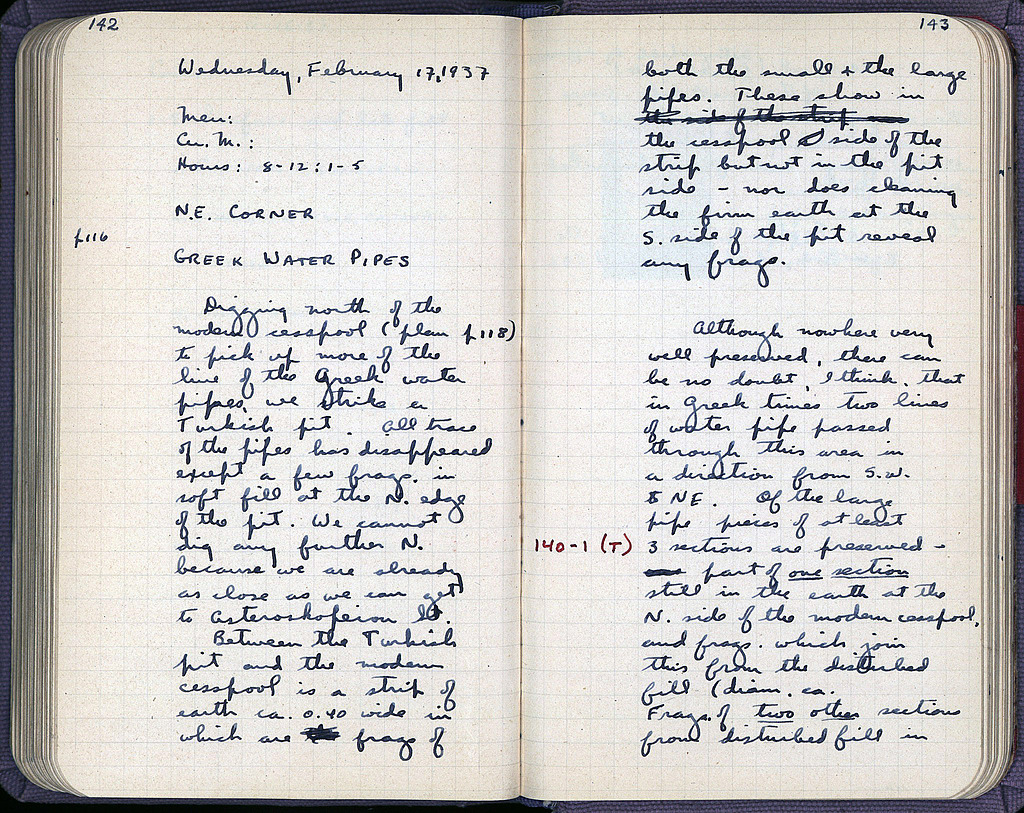 142
Wednesday, February 17, 1937
Men:
Cu. M.:
Hours: 8-12: 1-5
N.E. CORNER
p.116
GREEK WATER PIPES
Digging north of the
modern cesspool (plan p.118)
to pick up more of the
line of the Greek water
pipes, we strike a
Turkish pit. All trace
of the pipes has disappeared
except a few frags. in
soft fill at the N. edge
of the pit. We cannot
dig any further N.
because we are already
as close as we can get
to Asteroskopeion St.
Between the Turkish
pit and the modern
cesspool is a strip of
earth ca. 0.40 wide in
which are frags of
143
both the small + the large
pipes. These show in
the side of the strip
the cesspool side of the
strip but not in the pit
side - nor does cleaning
the firm earth at the
S. side of the pit reveal
any frags.
Although nowhere very
well preserved, there can
be no doubt, I think, that
in Greek times two lines
of water pipe passed
through this area in
a direction from S.W.
to NE. Of the large
pipe pieces of at least
140-1 (T) 3 sections are preserved -
part of one section
still in the earth at the
N. side of the modern cesspool,
and frags. which join
this from the disturbed
fill (diam. ca.
Frags. of two other sections
from disturbed fill in